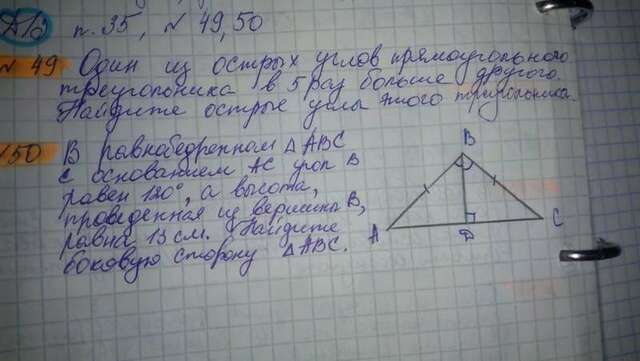 Д/З п. 35, № 49, 50
№ 49 Один из острых углов прямоугольного
треугольника в 5 раз больше другого.
Найдите острые углы этого треугольника.
50 В равнобедренном △ABC
с основанием AC угол B
равен 120°, а высота,
проведенная из вершины B,
равна 13 см. Найдите
боковую сторону △ABC.
B
A
D
C